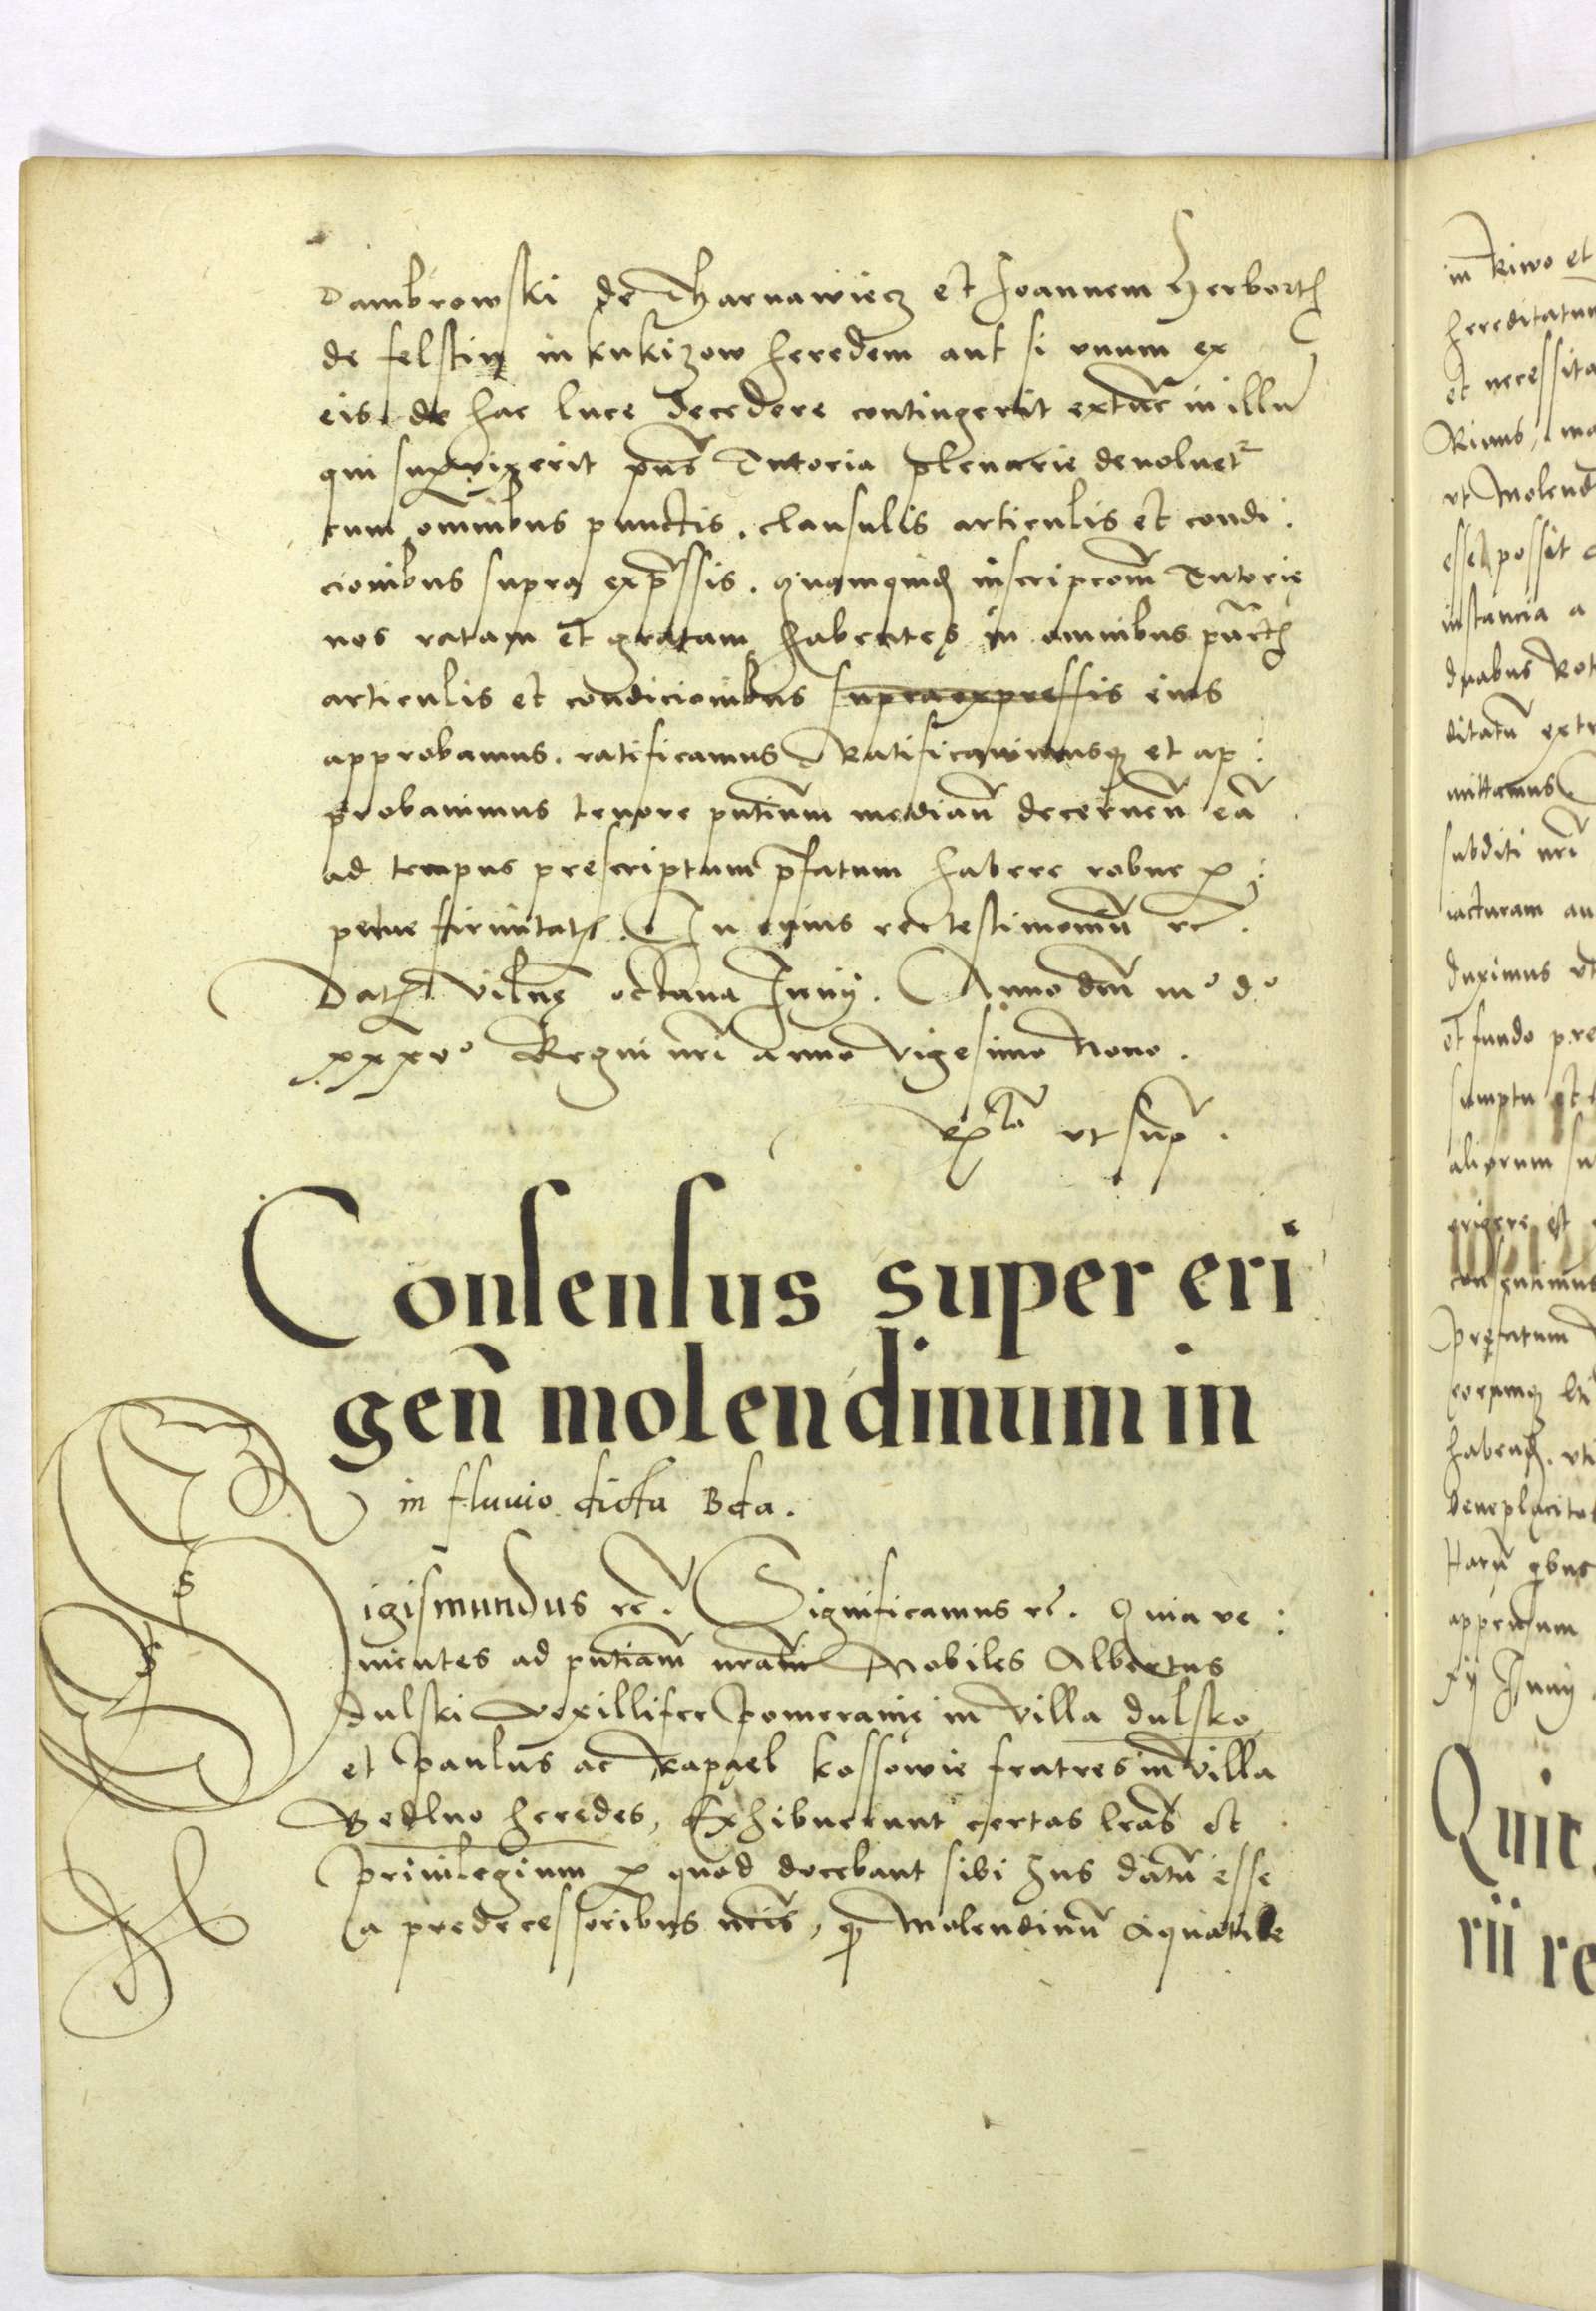 Dambrowski de Tharnawiecz et Joannem Herborth
de felstin in kukizow heredem aut si unum ex
eis de hac luce decedere contingerit extūc in illū
qui supervixerit pn̄s Tutoria plenarie devolvetr
cum om̄ibus punctis, clausulis articulis et condi:
cionibus supra exp̄ssis. quamquidē inscripcom̄ Tutorię
nos ratam et gratam habentes in omnibus punctis
articulis et condicionibus supraexpressis eius
approbamus, ratificamus Ratificavimusqȝ et ap:
probavimus tenore pn̄tium median̄ decernen̄ eā
ad tempus prescriptum p̄fatum habere robur p:
petue firmitatis. In cuius rei testimoniū rc̄.
Datę Vilnę octava Junij. Anno dn̄i mº dº
xxxvº Regni nr̄i anno Vigesimo Nono.
ut sup̄.
Consensus super eri
gen̄ molendinum in
in fluvio dicta Bda.
Sigismundus rc̄. Significamus rc̄. Quia ve:
nientes ad pn̄tiam nr̄am Nobiles Albertus
Dulski Vexillifer Pomeranię in villa dulsko
et Paulus ac Rapael kossowie fratres in villa
Bedlno heredes, Exhibuerunt certas lr̄as et
privilegium p quod docebant sibi Jus datū esse
a predecessoribus nr̄is, qđ Molendinū Aquatile
in kiwo et
hereditatum
et necessita
Rivus, ma
ut Molend
esse possit
instancia a
duabus Rot
ditatū extr
mittamus
subditi nr̄i
iacturam au
duximus ut
et fundo pre
sumptu et
aliorum su
erigere et
consentimus
Prefatum
eorumqȝ
habend. uti
beneplacitos
Harū qbus
appensum
xij Junij
Quit
rii re